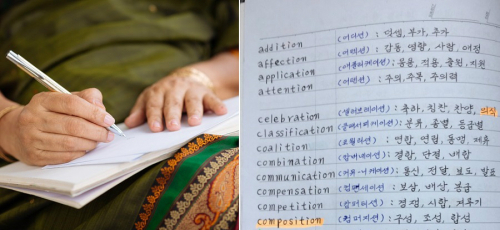 addition (어디션) : 덧셈, 부가, 추가
affection (어펙션) : 감동, 영향, 사랑, 애정
application (애플리케이션) : 응용, 적용, 출원, 지원
attention (어텐션) : 주의, 주목, 주의력
celebration (샐러브레이션) : 축하, 칭찬, 찬양, 의식
classification (클래서피케이션) : 분류, 종별, 등급별
coalition (코얼리션) : 연합, 연립, 동맹, 제휴
combination (캄버네이션) : 결합, 단결, 배합
communication (커뮤니케이션) : 통신, 전달, 보도, 발표
compensation (컴펜세이션 : 보상, 배상, 봉급
competition (캄퍼티션) : 경쟁, 시합, 겨루기
composition (컴퍼지션) : 구성, 조성, 합성